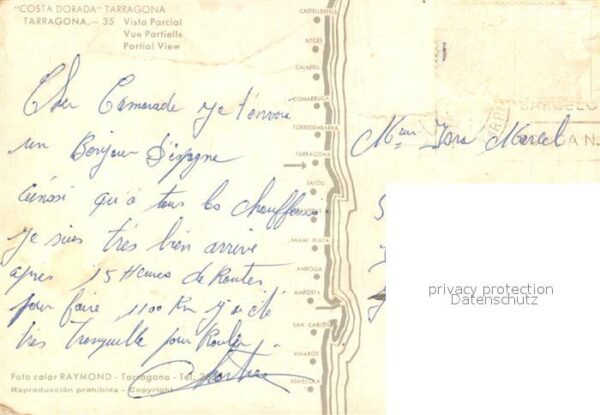 "COSTA DORADA" TARRAGONA
TARRAGONA.— 35 Vista Parcial
Vue Partielle
Partial View
Cher Camarade je t'envoie
un Bonjour D'épagne
ainssi qu'a tous les chauffeurs
je suis très bien arrivé
apres 15 Heures de Routes
pour faire 1100 Km j'ai été
tres Tranquille pour Rouler
Foto color RAYMOND - Tarragona - Tel.
Reproducción prohibida - Copyright
CASTELLDEFELS
SITGES
CALAFELL
COMARRUGA
TORREDEMBARRA
TARRAGONA
SALOU
MIAMI PLAYA
AMPOLLA
AMPOSTA
SAN CARLOS
VINAROZ
PEÑISCOLA
BARCELO
A N.
Marcel
privacy protection
Datenschutz